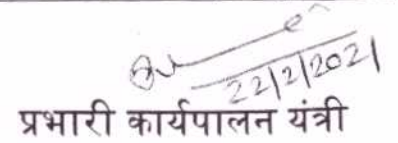 22/2/2021
प्रभारी कार्यपालन यंत्री